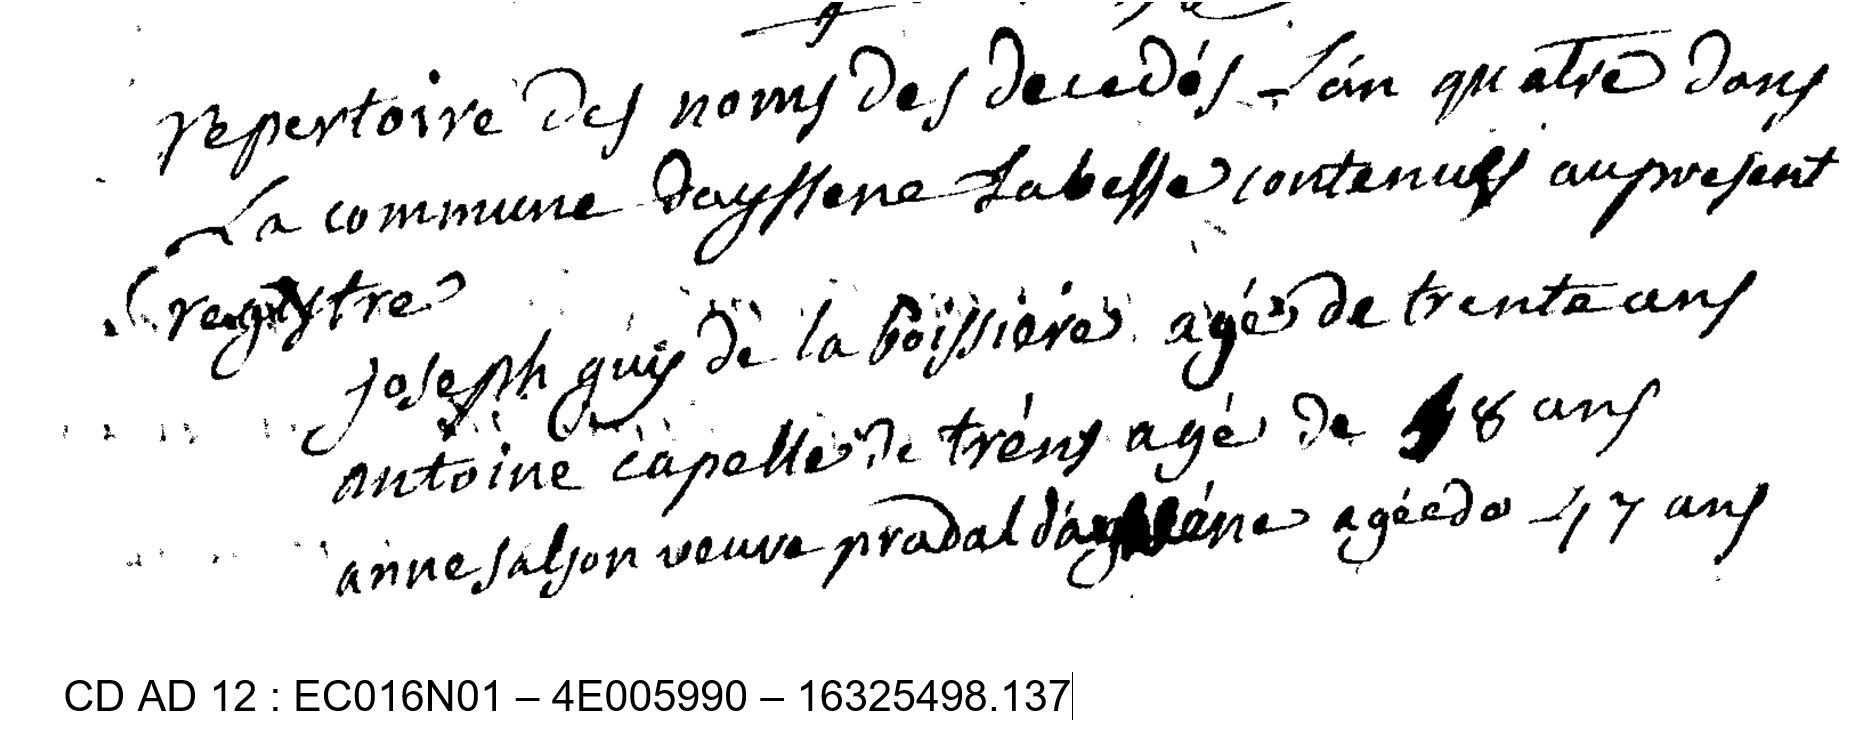 repertoire des noms des decedés L'an quatre dans
La commune dayssene Labesse contenues au present
registre
joseph guy de la boissiere agé de trente ans
antoine capelle de tréns agé de 18 ans
anne salson veuve pradal d'ayssène agée de 47 ans
CD AD 12 : EC016N01 – 4E005990 – 16325498.137